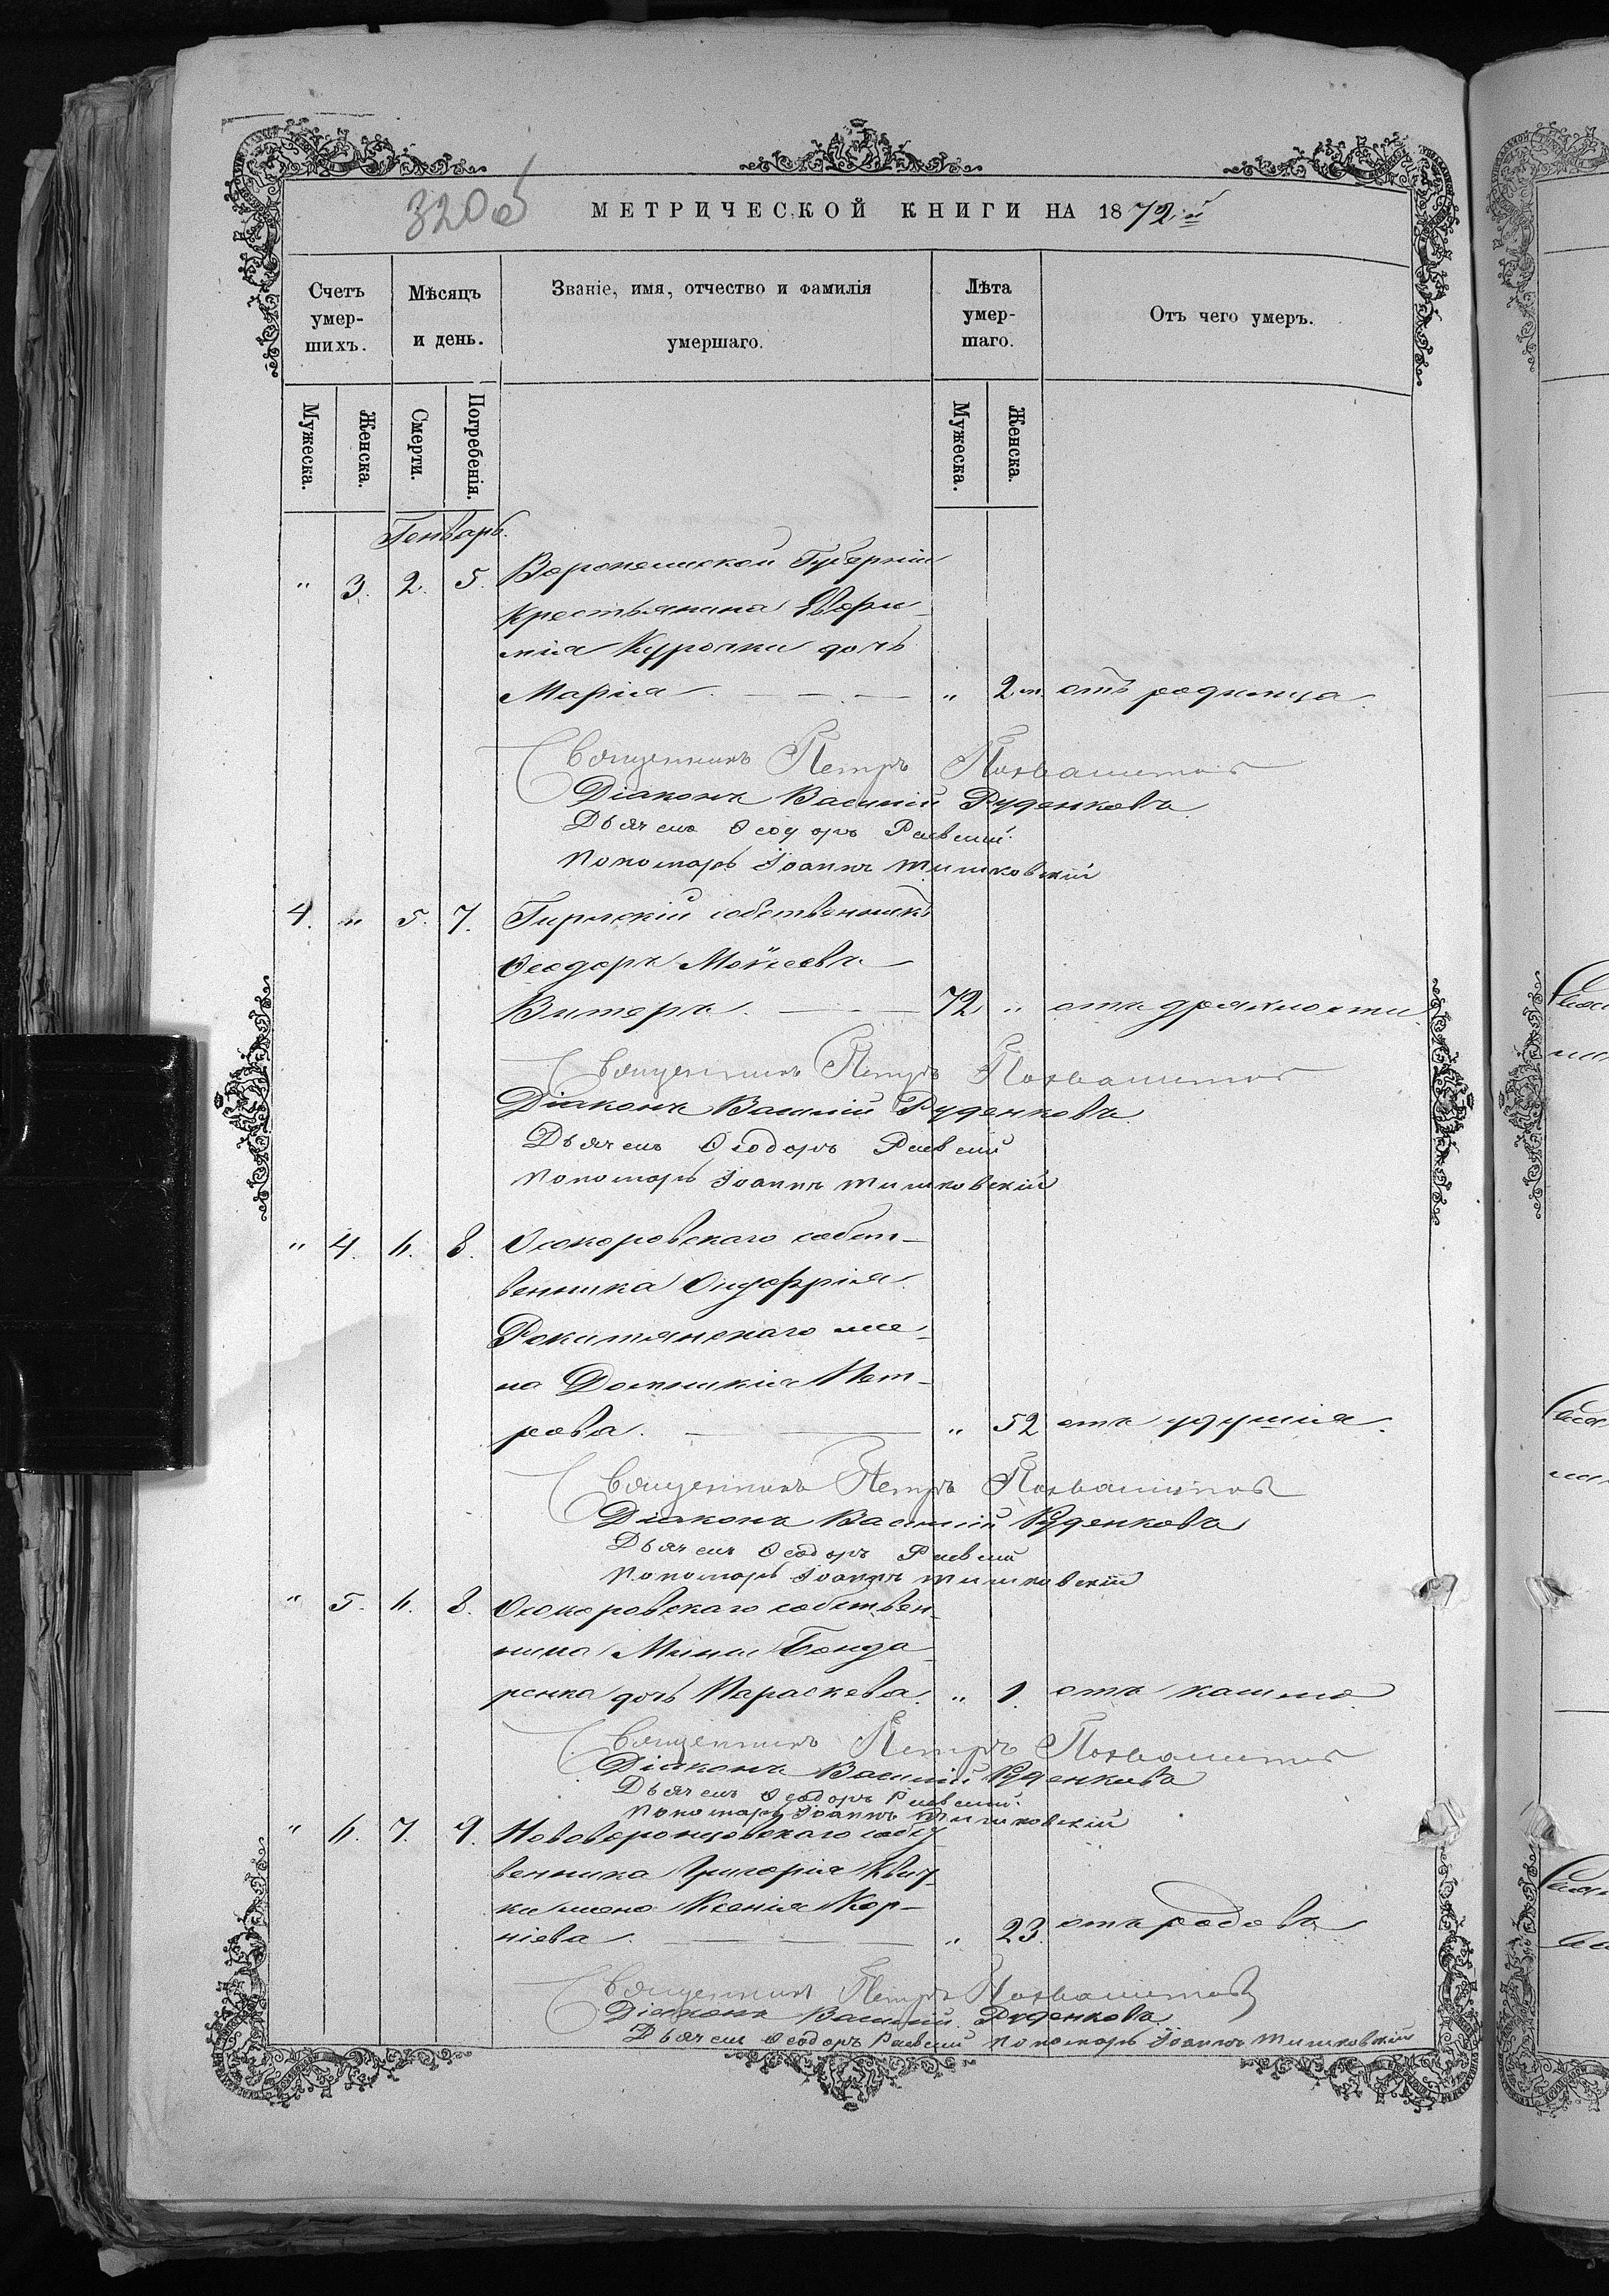 320об
МЕТРИЧЕСКОЙ КНИГИ НА 1872й
Счетъ умер-шихъ.
Мѣсяцъ и день.
Званіе, имя, отчество и фамилія умершаго.
Лѣта умер-шаго.
Отъ чего умеръ.
Мужеска.
Женска.
Смерти.
Погребенія.
Мужеска.
Женска.
Генварь.
" 3. 2. 5. Воронежской Губерніи
крестьянина Евфи-
мія Курочки дочь
Марія. " 2 м. отъ родимца.
Священникъ Петръ
Діаконъ Василій Руденковъ
Дьячекъ Ѳеодоръ Раевскій
Пономарь Іоаннъ Тишковскій
4. " 5. 7. Гирлскій собственникъ
Ѳеодоръ Моисеевъ
Витеръ. 72 " отъ дряхлости
Священникъ Петръ
Діаконъ Василій Руденковъ
Дьячекъ Ѳеодоръ Раевскій
Пономарь Іоаннъ Тишковскій
" 4. 6. 8. Осокоровскаго собст-
венника Онуфрія
Рокитянскаго же-
на Домникія Пет-
рова. " 52 отъ удушія.
Священникъ Петръ
Діаконъ Василій Руденковъ
Дьячекъ Ѳеодоръ Раевскій
Пономарь Іоаннъ Тишковскій
" 5. 6. 8. Осокоровскаго собствен-
ника Мины Бонда-
ренка дочь Параскева. " 1. отъ кашлю
Священникъ Петръ
Діаконъ Василій Руденковъ
Дьячекъ Ѳеодоръ Раевскій
Пономарь Іоаннъ Тишковскій
" 6. 7. 9. Нововоронцовскаго собст
венника Григорія
жена Ксенія Кор-
ніева. " 23. отъ родовъ
Священникъ Петръ
Діаконъ Василій Руденковъ
Дьячекъ Ѳеодоръ Раевскій Пономарь Іоаннъ Тишковскій